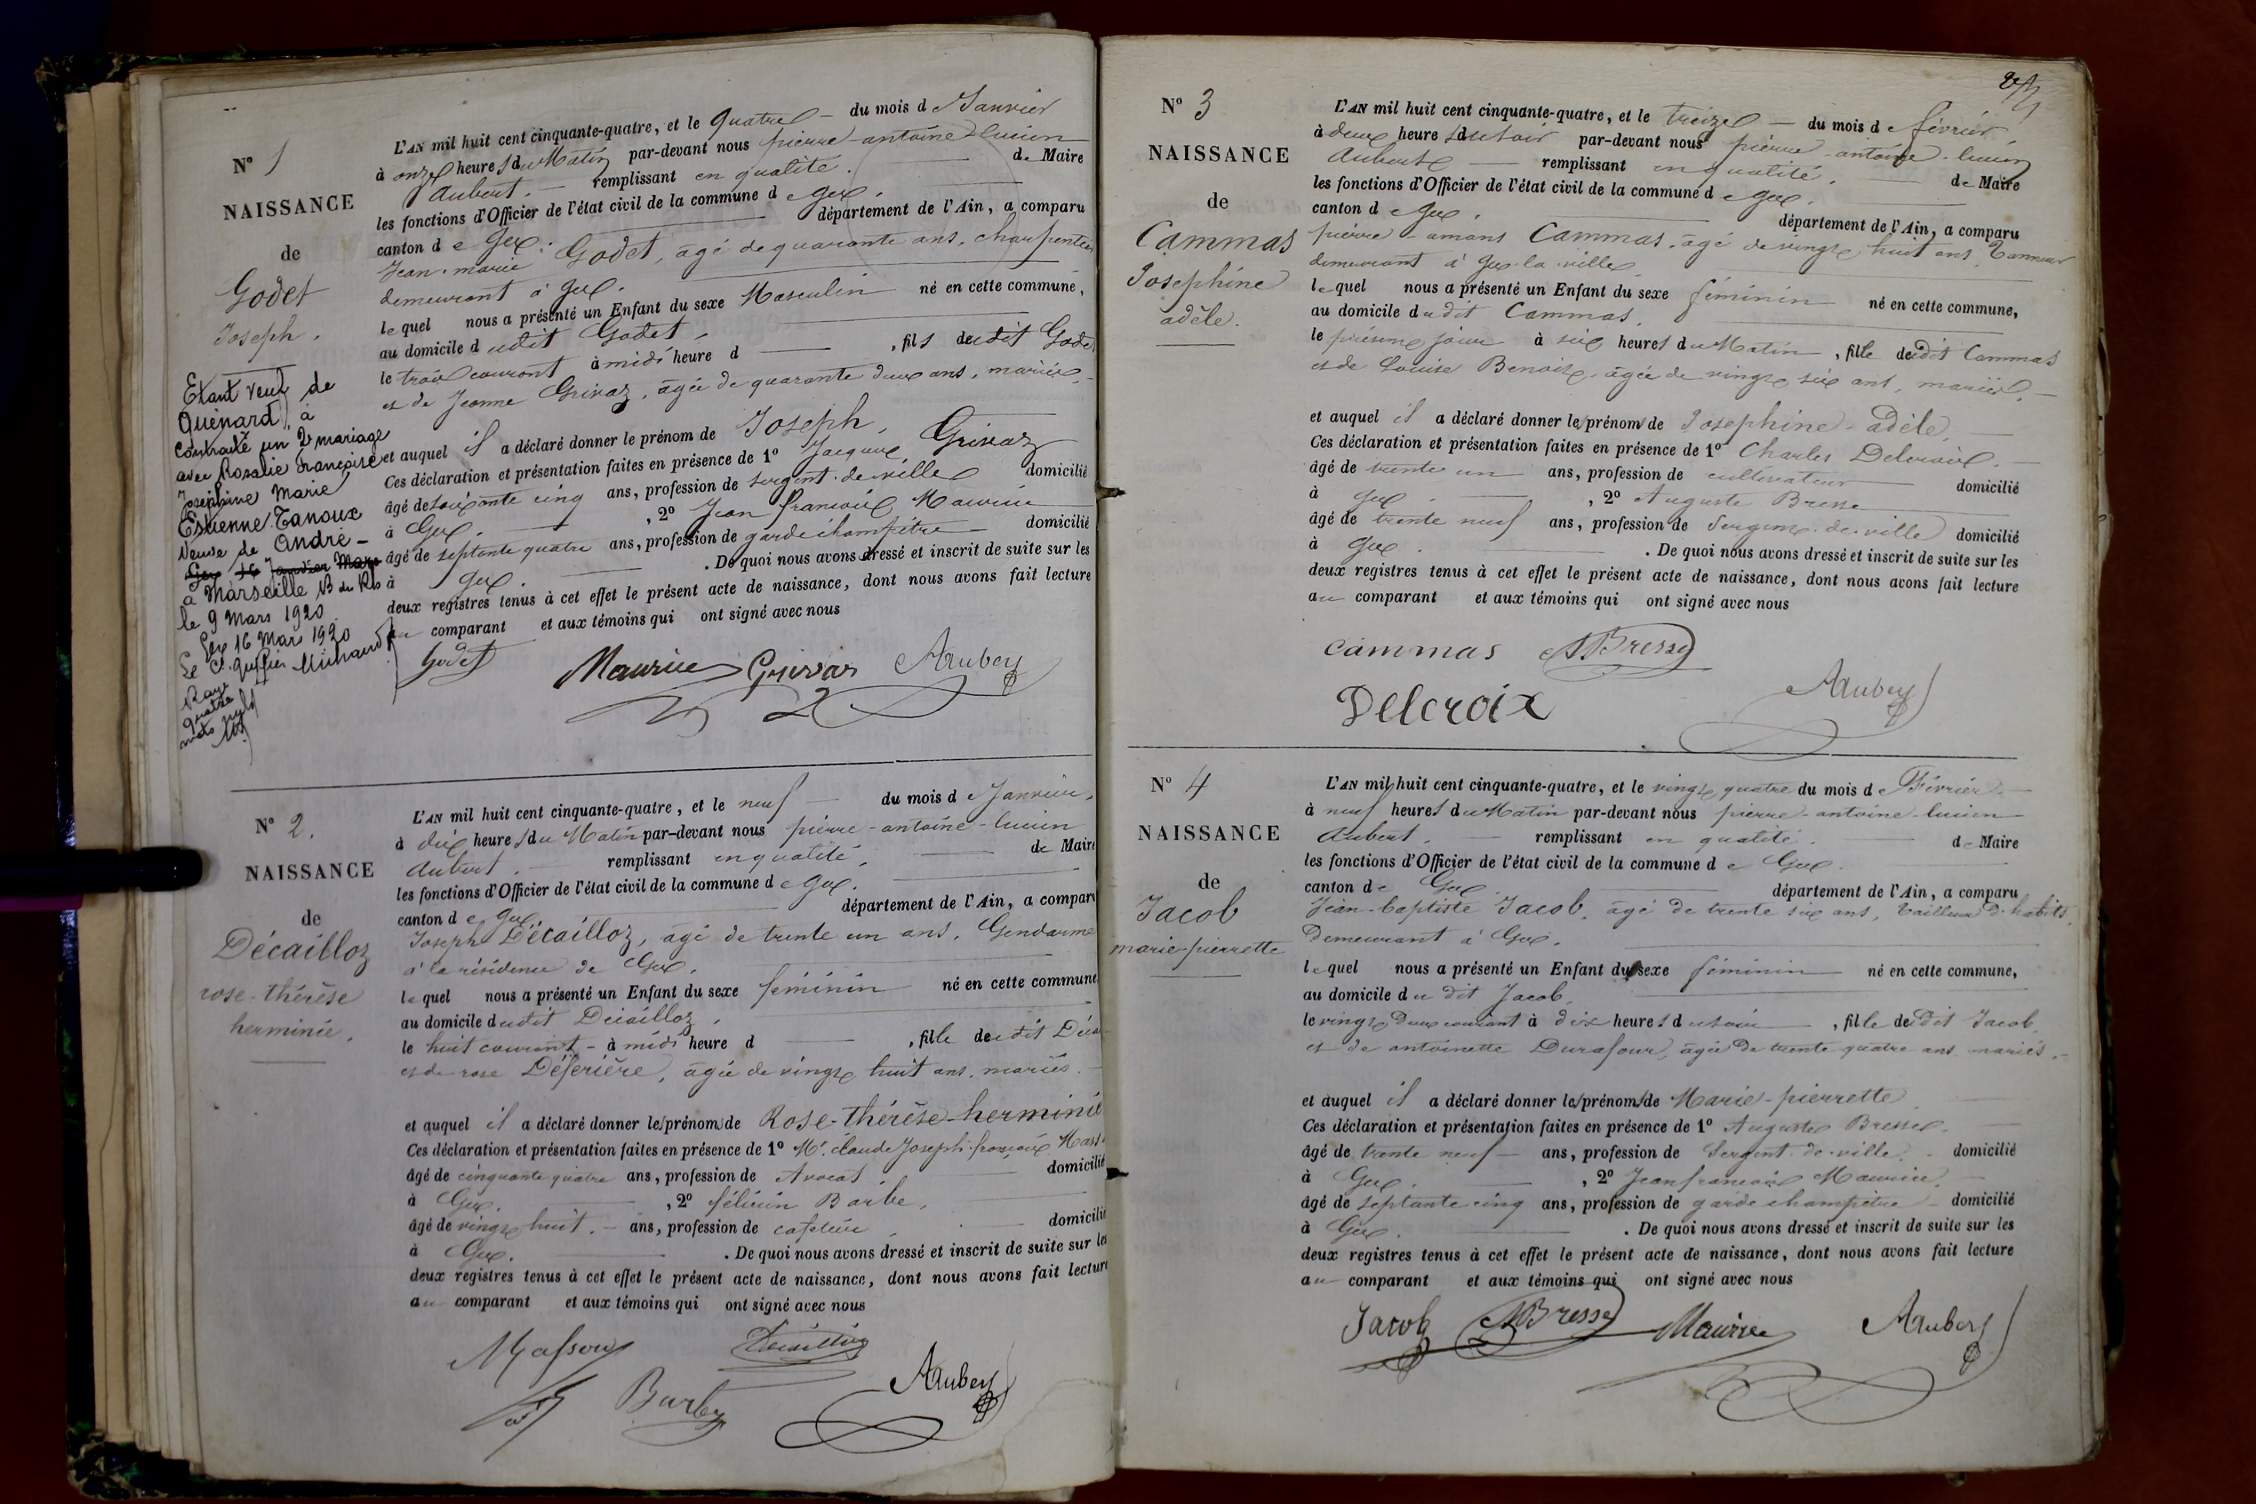 N° 1
NAISSANCE
de
Godet
Joseph.
Etant veuf de
Quénard, a
contracté un 2e mariage
avec Rosalie Françoise
Joséphine Marie
Estienne Tanoux
veuve de André
Gex 16 Janvier Mars
à Marseille B du R
le 9 Mars 1920
Gex 16 Mars 1920
Le Greffier
Rayé
quatre
mots nuls
L'AN mil huit cent cinquante-quatre, et le quatre du mois de Janvier
à onze heures du Matin par-devant nous pierre-antoine-lucien
Aubert. remplissant en qualité. de Maire
les fonctions d'Officier de l'état civil de la commune de Gex.
canton de Gex. département de l'Ain, a comparu
Jean-marie Godet, âgé de quarante ans, charpentier
demeurant à Gex.
lequel nous a présenté un Enfant du sexe Masculin né en cette commune,
au domicile dudit Godet.
le trois courant à midi heure d , fils dudit Godet
et de Jeanne Grivaz, âgée de quarante deux ans, mariés.
et auquel il a déclaré donner le prénom de Joseph.
Ces déclaration et présentation faites en présence de 1° Jacques Grivaz
âgé de soixante cinq ans, profession de sergent de ville domicilié
à Gex. , 2° Jean françois Maurice
âgé de septante quatre ans, profession de garde champêtre domicilié
à Gex. . De quoi nous avons dressé et inscrit de suite sur les
deux registres tenus à cet effet le présent acte de naissance, dont nous avons fait lecture
au comparant et aux témoins qui ont signé avec nous
Godet Maurice Grivaz Aubert
N° 2.
NAISSANCE
de
Décailloz
rose-thérèse
herminie.
L'AN mil huit cent cinquante-quatre, et le neuf du mois de Janvier.
à dix heures du Matin par-devant nous pierre-antoine-lucien
Aubert remplissant en qualité. de Maire
les fonctions d'Officier de l'état civil de la commune de Gex.
canton de Gex. département de l'Ain, a comparu
Joseph Décailloz, âgé de trente un ans, Gendarme
à la résidence de Gex.
lequel nous a présenté un Enfant du sexe féminin né en cette commune
au domicile dudit Décailloz.
le huit courant à midi heure d , fille dudit Déca
et de rose Déferière, âgée de vingt huit ans, mariés.
et auquel il a déclaré donner le prénom de Rose-thérèse-herminie
Ces déclaration et présentation faites en présence de 1° Mr. claude Joseph françois Masson
âgé de cinquante quatre ans, profession de Avocat domicilié
à Gex. , 2° félicien Barbe.
âgé de vingt huit. ans, profession de domicilié
à Gex. . De quoi nous avons dressé et inscrit de suite sur les
deux registres tenus à cet effet le présent acte de naissance, dont nous avons fait lecture
au comparant et aux témoins qui ont signé avec nous
Masson Décailloz
Barbe Aubert
N° 3
NAISSANCE
de
Cammas
Josephine
adèle.
L'AN mil huit cent cinquante-quatre, et le treize du mois de février
à deux heures du soir par-devant nous pierre-antoine-lucien
Aubert remplissant en qualité. de Maire
les fonctions d'Officier de l'état civil de la commune de Gex.
canton de Gex. département de l'Ain, a comparu
pierre-amans Cammas, âgé de vingt huit ans, Tanneur
demeurant à Gex-la-ville
lequel nous a présenté un Enfant du sexe féminin né en cette commune,
au domicile du dit Cammas.
le présent jour à six heures du Matin, fille dudit Cammas
et de Louise Benoit âgée de vingt six ans, mariés.
et auquel il a déclaré donner le prénom de Josephine-Adèle.
Ces déclaration et présentation faites en présence de 1° Charles Delcroix.
âgé de trente un ans, profession de cultivateur domicilié
à Gex. , 2° Auguste Bresse
âgé de trente neuf ans, profession de Sergent de ville domicilié
à Gex. . De quoi nous avons dressé et inscrit de suite sur les
deux registres tenus à cet effet le présent acte de naissance, dont nous avons fait lecture
au comparant et aux témoins qui ont signé avec nous
Cammas ABresse
Delcroix Aubert
N° 4
NAISSANCE
de
Jacob
marie-pierrette
L'AN mil huit cent cinquante-quatre, et le vingt quatre du mois de Février.
à neuf heures du Matin par-devant nous pierre-antoine-lucien
Aubert. remplissant en qualité. de Maire
les fonctions d'Officier de l'état civil de la commune de Gex.
canton de Gex. département de l'Ain, a comparu
Jean-baptiste Jacob, âgé de trente six ans, tailleur d'habits.
Demeurant à Gex.
lequel nous a présenté un Enfant du sexe féminin né en cette commune,
au domicile du dit Jacob.
le vingt Deux courant à dix heures du soir , fille dudit Jacob
et de antoinette Durafour, âgée De trente quatre ans mariés.
et auquel il a déclaré donner le prénom de Marie-pierrette
Ces déclaration et présentation faites en présence de 1° Auguste Bresse.
âgé de trente neuf ans, profession de Sergent de ville. domicilié
à Gex. , 2° Jean françois Maurice.
âgé de septante cinq ans, profession de garde champêtre domicilié
à Gex. . De quoi nous avons dressé et inscrit de suite sur les
deux registres tenus à cet effet le présent acte de naissance, dont nous avons fait lecture
au comparant et aux témoins qui ont signé avec nous
Jacob ABresse Maurice Aubert